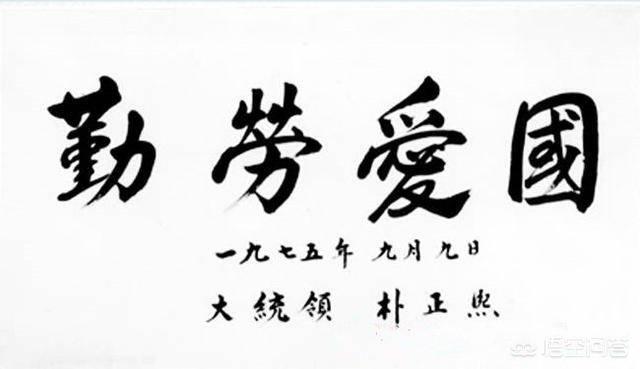 勤勞愛國
一九七五年 九月九日
大統領 朴正熙
悟空问答